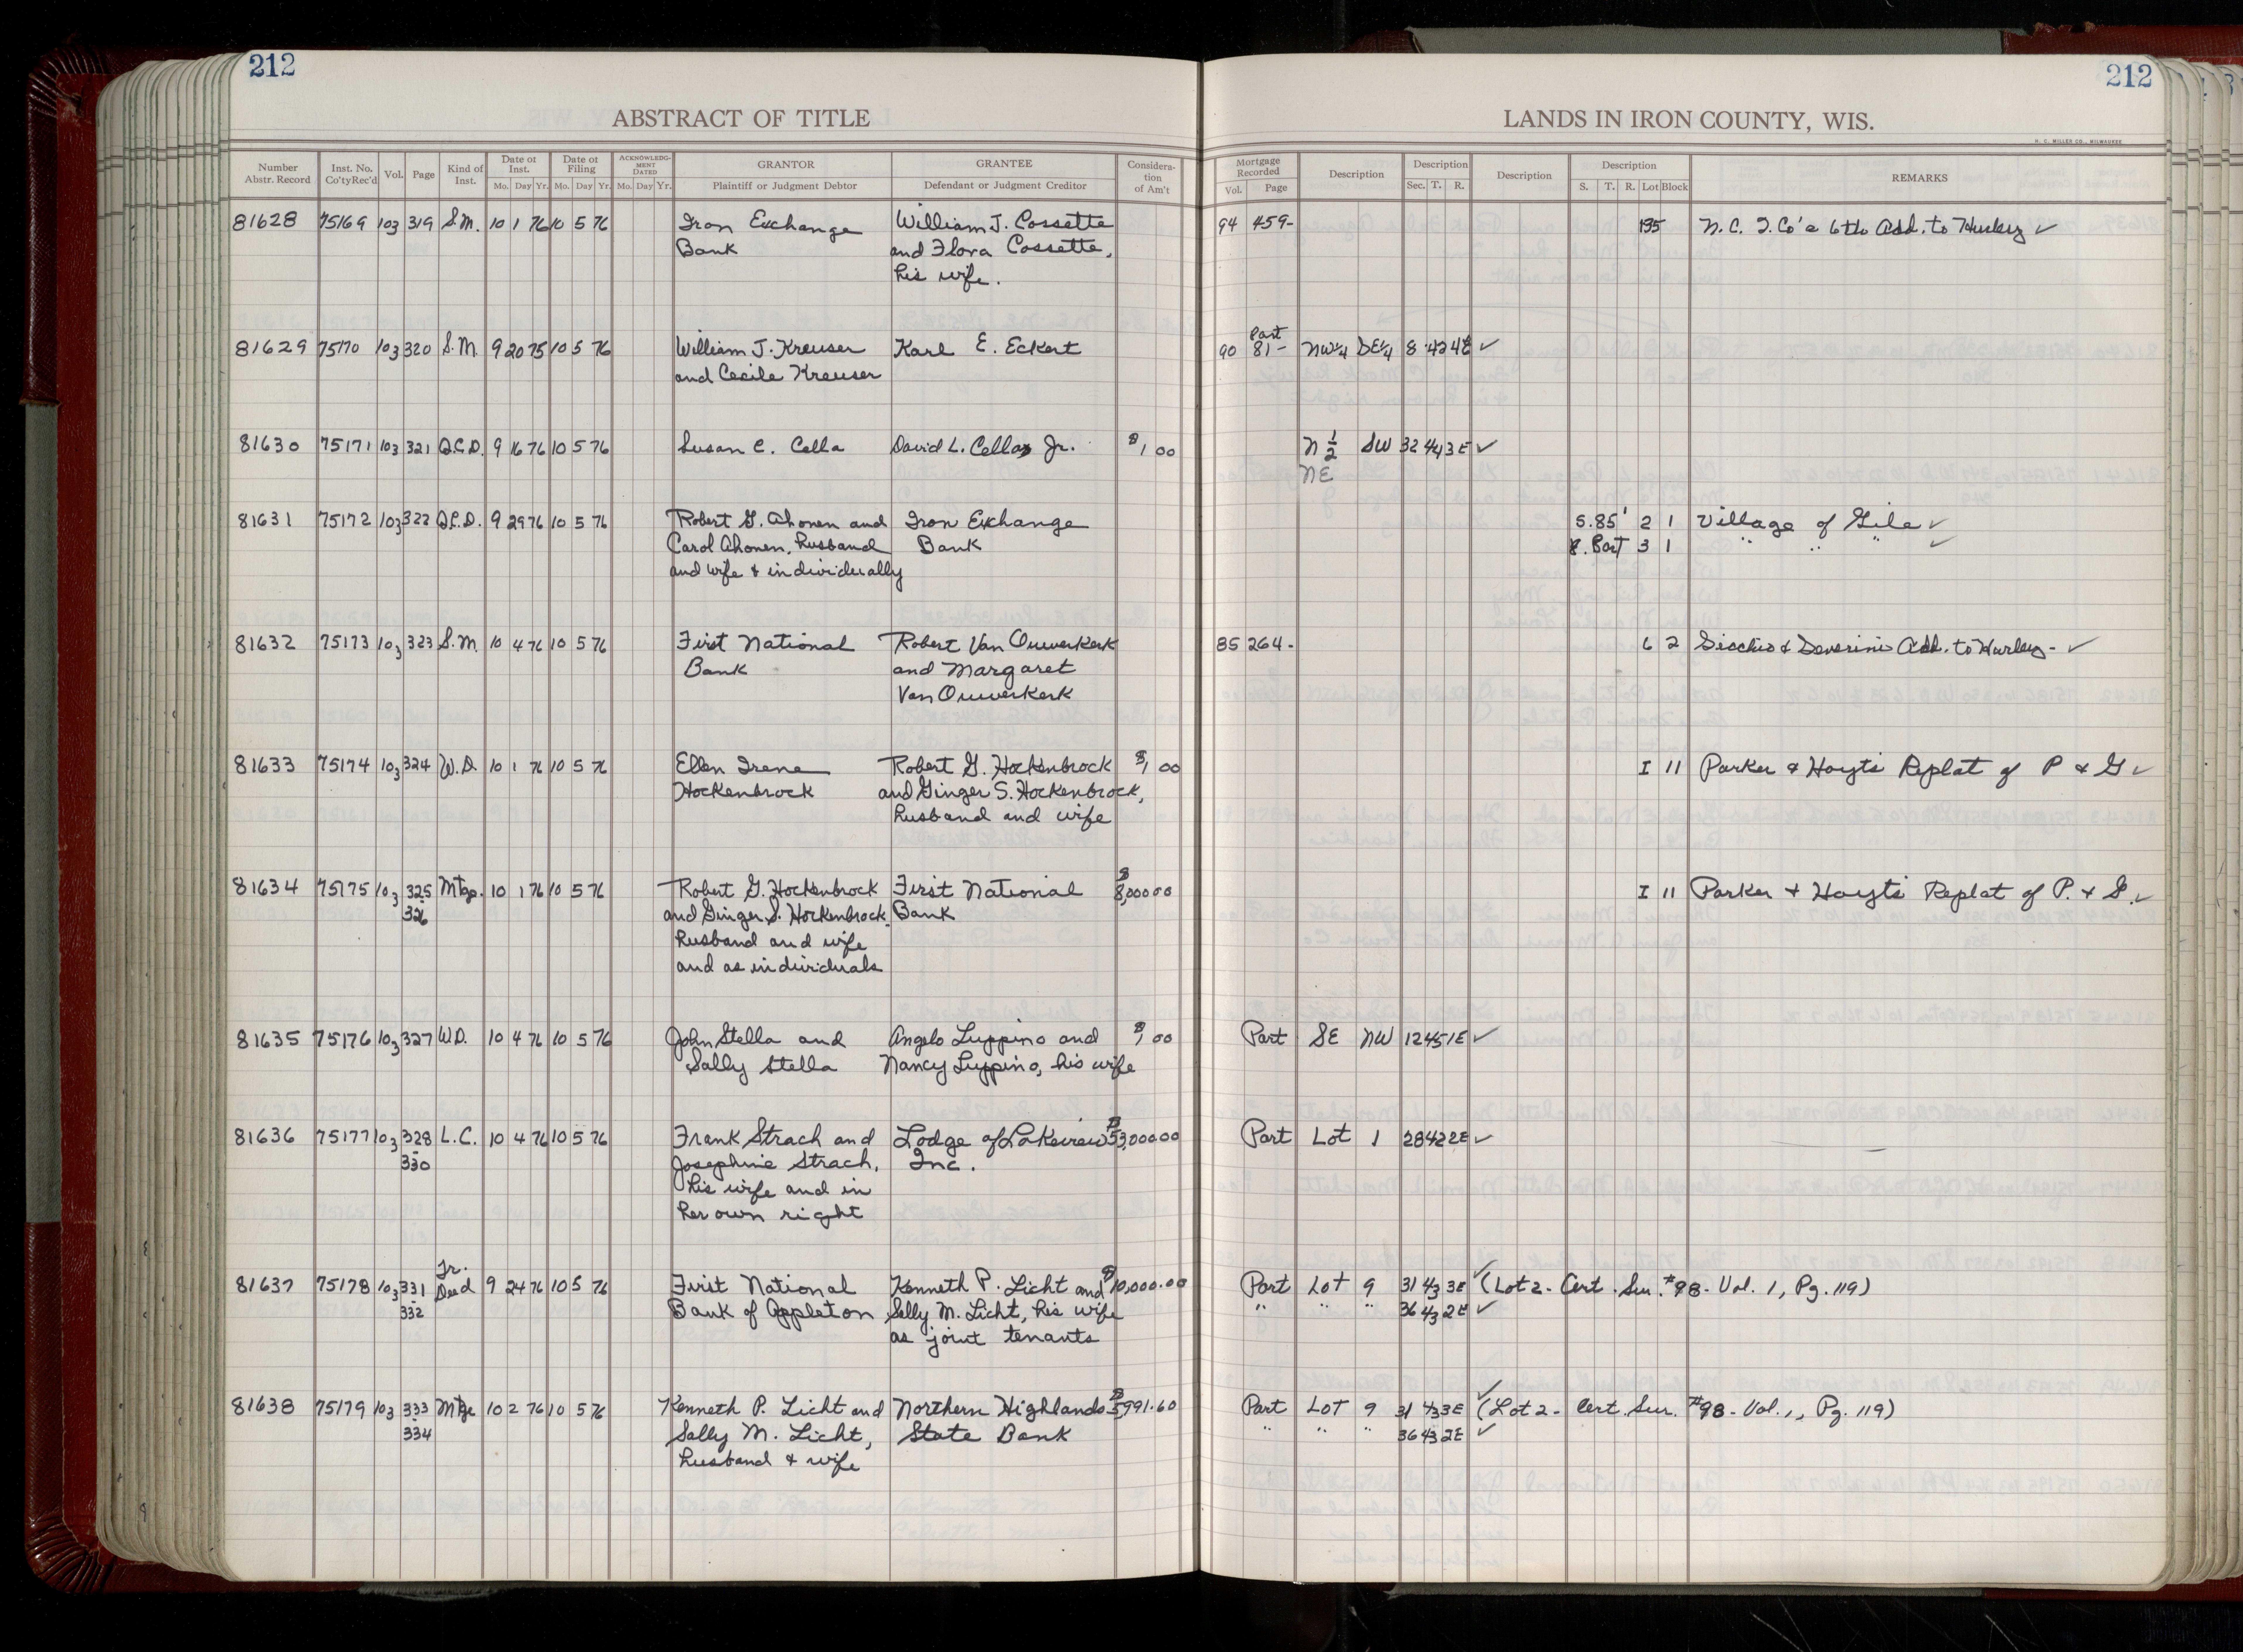 212
ABSTRACT OF TITLE
Number Abstr. Record | Inst. No. Co'ty Rec'd | Vol. | Page | Kind of Inst. | Date of Inst. Mo. Day Yr. | Date of Filing Mo. Day Yr. | ACKNOWLEDGMENT DATED Mo. Day Yr. | GRANTOR Plaintiff or Judgment Debtor | GRANTEE Defendant or Judgment Creditor | Consideration of Am't
81628 75169 103 319 S.M. 10 1 76 10 5 76 Iron Exchange William J. Cossette
Bank and Flora Cossette,
his wife.
81629 75170 103 320 S.M. 9 20 75 10 5 76 William J. Kreuser Karl E. Eckert
and Cecile Kreuser
81630 75171 103 321 Q.C.D. 9 16 76 10 5 76 Susan C. Cella David L. Cella, Jr. $1 00
81631 75172 103 322 Q.C.D. 9 29 76 10 5 76 Robert G. Ahonen and Iron Exchange
Carol Ahonen, husband Bank
and wife & individually
81632 75173 103 323 S.M. 10 4 76 10 5 76 First National Robert Van Ouwerkerk
Bank and Margaret
Van Ouwerkerk
81633 75174 103 324 W.D. 10 1 76 10 5 76 Ellen Irene Robert G. Hockenbrock $1 00
Hockenbrock and Ginger S. Hockenbrock,
husband and wife
81634 75175 103 325 Mtge. 10 1 76 10 5 76 Robert G. Hockenbrock First National $8,000 00
326 and Ginger S. Hockenbrock, Bank
husband and wife
and as individuals
81635 75176 103 327 W.D. 10 4 76 10 5 76 John Stella and Angelo Luppino and $1 00
Sally Stella Nancy Luppino, his wife
81636 75177 103 328 L.C. 10 4 76 10 5 76 Frank Strach and Lodge of Lakeview $53,000.00
- 330 Josephine Strach, Inc.
his wife and in
her own right
Tr.
81637 75178 103 331 Deed 9 24 76 10 5 76 First National Kenneth P. Licht and $10,000.00
- 332 Bank of Appleton Sally M. Licht, his wife
as joint tenants
81638 75179 103 333 Mtge 10 2 76 10 5 76 Kenneth P. Licht and Northern Highlands $5991.60
- 334 Sally M. Licht, State Bank
husband & wife
212
LANDS IN IRON COUNTY, WIS.
H. C. MILLER CO., MILWAUKEE
Mortgage Recorded Vol. Page | Description | Description Sec. T. R. | Description | Description S. T. R. Lot Block | REMARKS
94 459- 135 N.C. I. Co's 6th Add. to Hurley ✓
Part
90 81- NW¼ SE¼ 8 42 4E ✓
N ½ SW 32 44 3E ✓
NE
S. 85' 2 1 Village of Gile ✓
Part 3 1 " " " ✓
85 264- 6 2 Add. to Hurley - ✓
I 11 Parker & Hoyt's Replat of P & G ✓
I 11 Parker & Hoyt's Replat of P. & G. ✓
Part SE NW 12 45 1E ✓
Part Lot 1 28 42 2E ✓
Part Lot 9 31 43 3E ✓ (Lot 2 - Cert. Sur. #98 - Vol. 1, Pg. 119)
" " " 36 43 2E ✓
Part Lot 9 31 43 3E ✓ (Lot 2 - Cert. Sur. #98 - Vol. 1, Pg. 119)
" " " 36 43 2E ✓